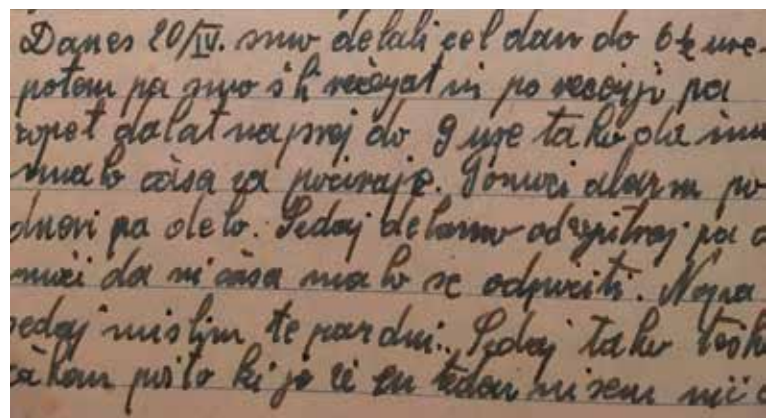 Danes 20/IV. smo delali cel dan do 6 ½ ure.
potem pa smo šli večerjat in po večerji pa
zopet dalat naprej do 9 ure tako da imam
malo časa za počivaje. Ponoči alarm po
dnevi pa delo. Sedaj delamo od zjutraj pa
noči da ni časa malo se odpočiti.
sedaj mislim te par dni. Sedaj tako tešk
čakam pošto ki je že en teden nisem nič